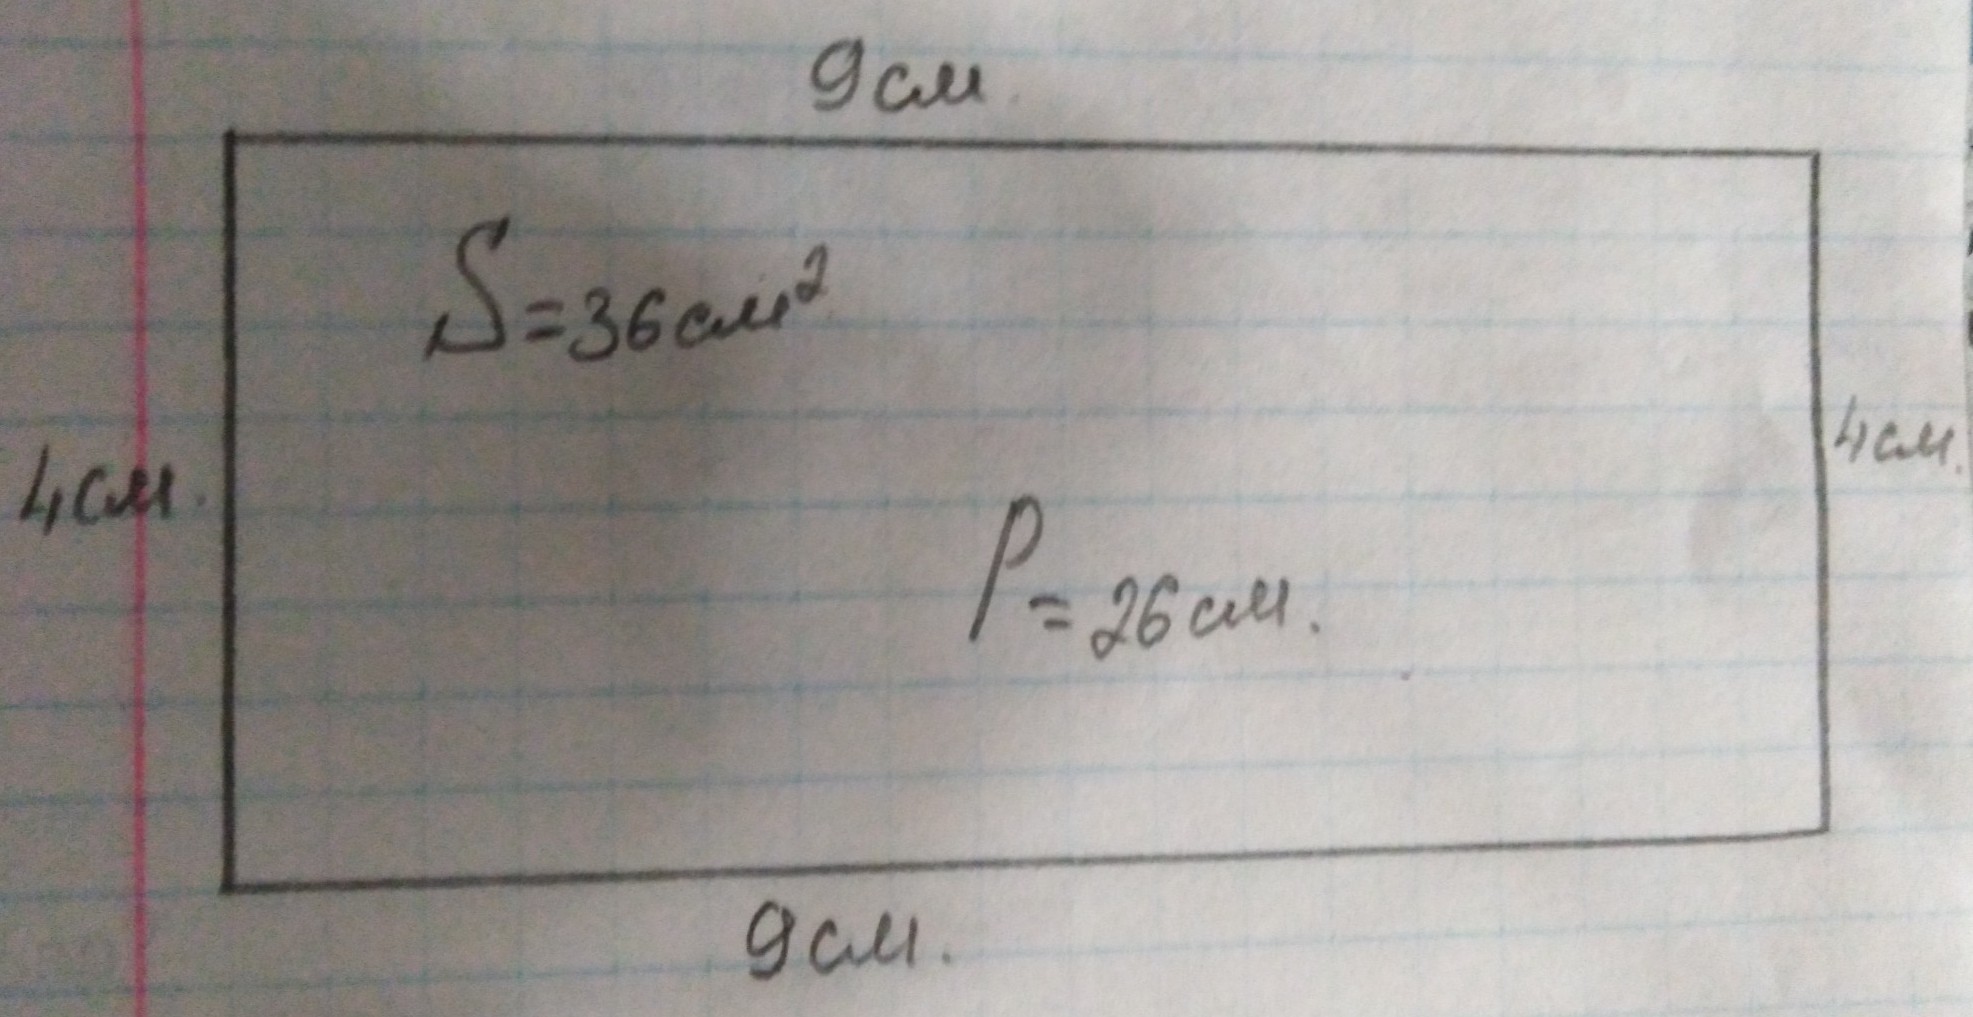 9см.
S=36см²
4см.
4см.
P=26см.
9см.